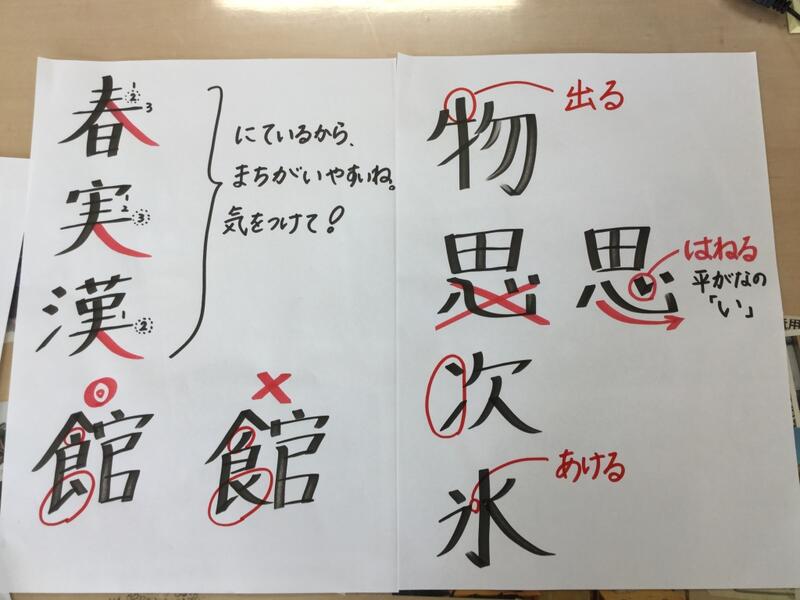 春 1 2 3
実 1 2 3
漢 2
にているから、
まちがいやすいね。
気をつけて!
館 館
物 出る
思 思 はねる
平がなの
「い」
次
氷 あける
用